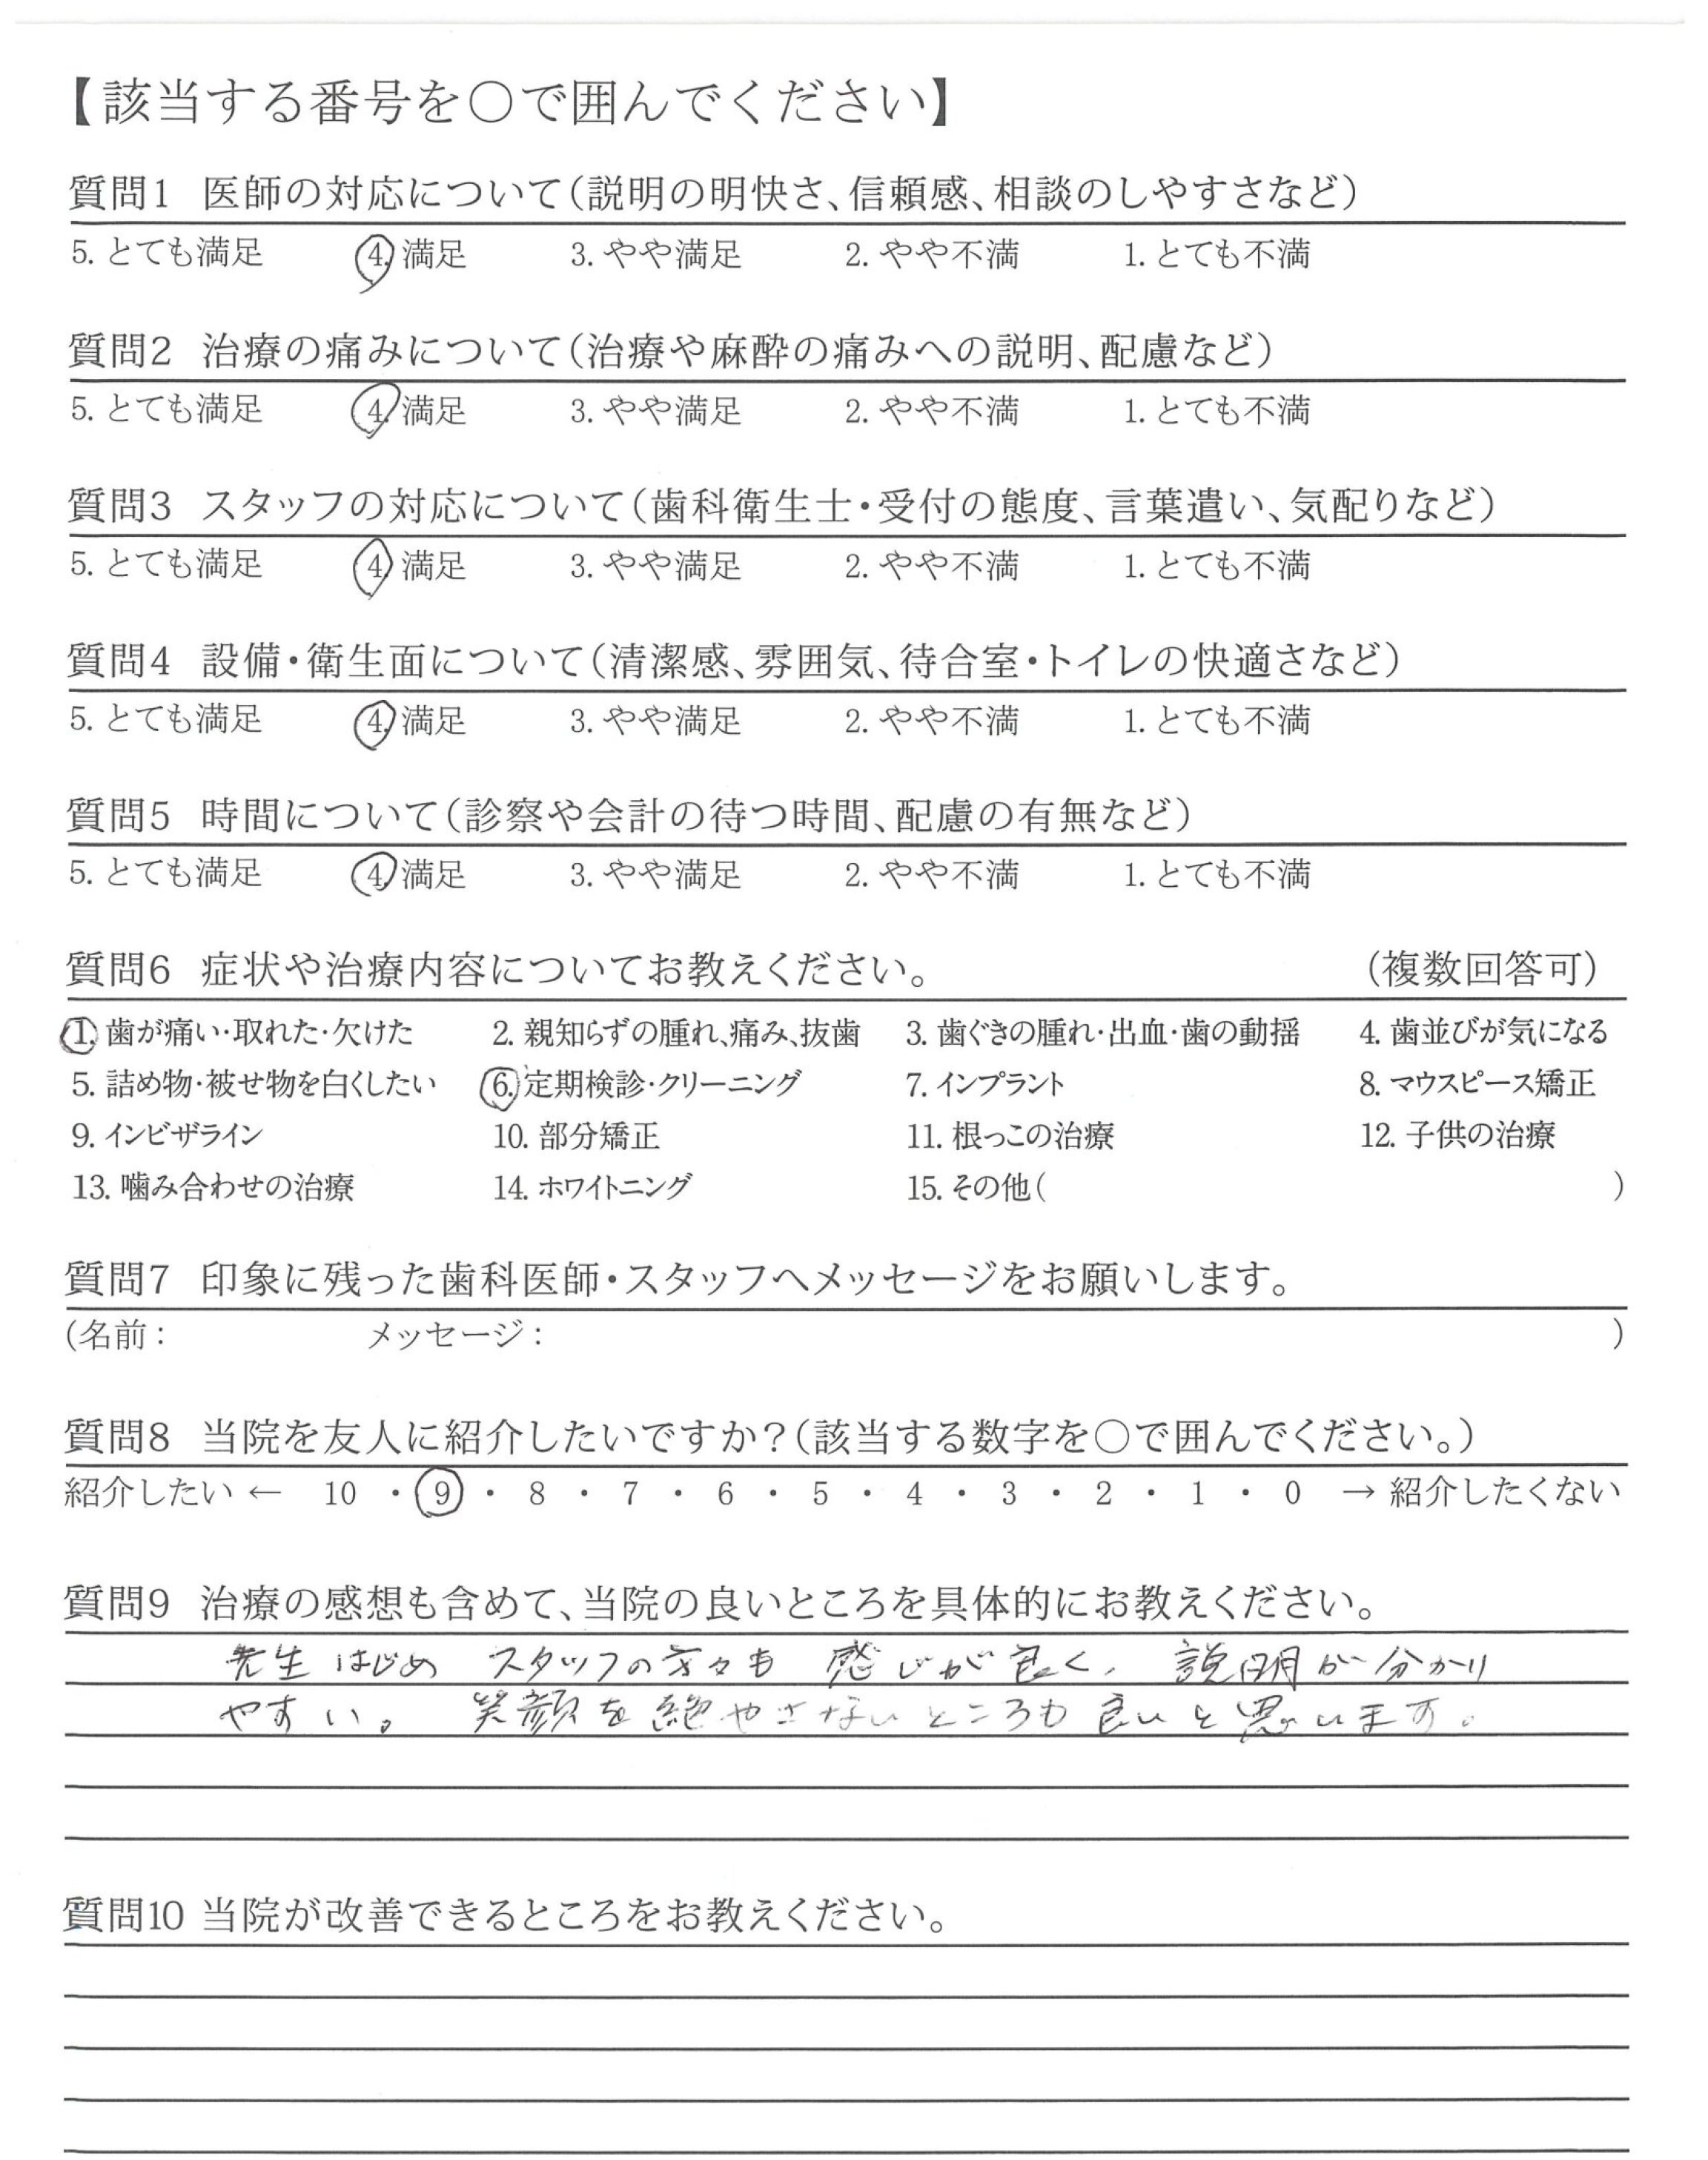 【該当する番号を〇で囲んでください】
質問1 医師の対応について(説明の明快さ、信頼感、相談のしやすさなど)
5. とても満足 4. 満足 3. やや満足 2. やや不満 1. とても不満
質問2 治療の痛みについて(治療や麻酔の痛みへの説明、配慮など)
5. とても満足 4. 満足 3. やや満足 2. やや不満 1. とても不満
質問3 スタッフの対応について(歯科衛生士・受付の態度、言葉遣い、気配りなど)
5. とても満足 4. 満足 3. やや満足 2. やや不満 1. とても不満
質問4 設備・衛生面について(清潔感、雰囲気、待合室・トイレの快適さなど)
5. とても満足 4. 満足 3. やや満足 2. やや不満 1. とても不満
質問5 時間について(診察や会計の待つ時間、配慮の有無など)
5. とても満足 4. 満足 3. やや満足 2. やや不満 1. とても不満
質問6 症状や治療内容についてお教えください。 (複数回答可)
1. 歯が痛い・取れた・欠けた 2. 親知らずの腫れ、痛み、抜歯 3. 歯ぐきの腫れ・出血・歯の動揺 4. 歯並びが気になる
5. 詰め物・被せ物を白くしたい 6. 定期検診・クリーニング 7. インプラント 8. マウスピース矯正
9. インビザライン 10. 部分矯正 11. 根っこの治療 12. 子供の治療
13. 噛み合わせの治療 14. ホワイトニング 15. その他( )
質問7 印象に残った歯科医師・スタッフへメッセージをお願いします。
(名前: メッセージ: )
質問8 当院を友人に紹介したいですか?(該当する数字を〇で囲んでください。)
紹介したい ← 10 ・ 9 ・ 8 ・ 7 ・ 6 ・ 5 ・ 4 ・ 3 ・ 2 ・ 1 ・ 0 → 紹介したくない
質問9 治療の感想も含めて、当院の良いところを具体的にお教えください。
先生はじめ スタッフの方々も 感じが良く、説明が分かり
やすい。 笑顔を絶やさないところも良いと思います。
質問10 当院が改善できるところをお教えください。